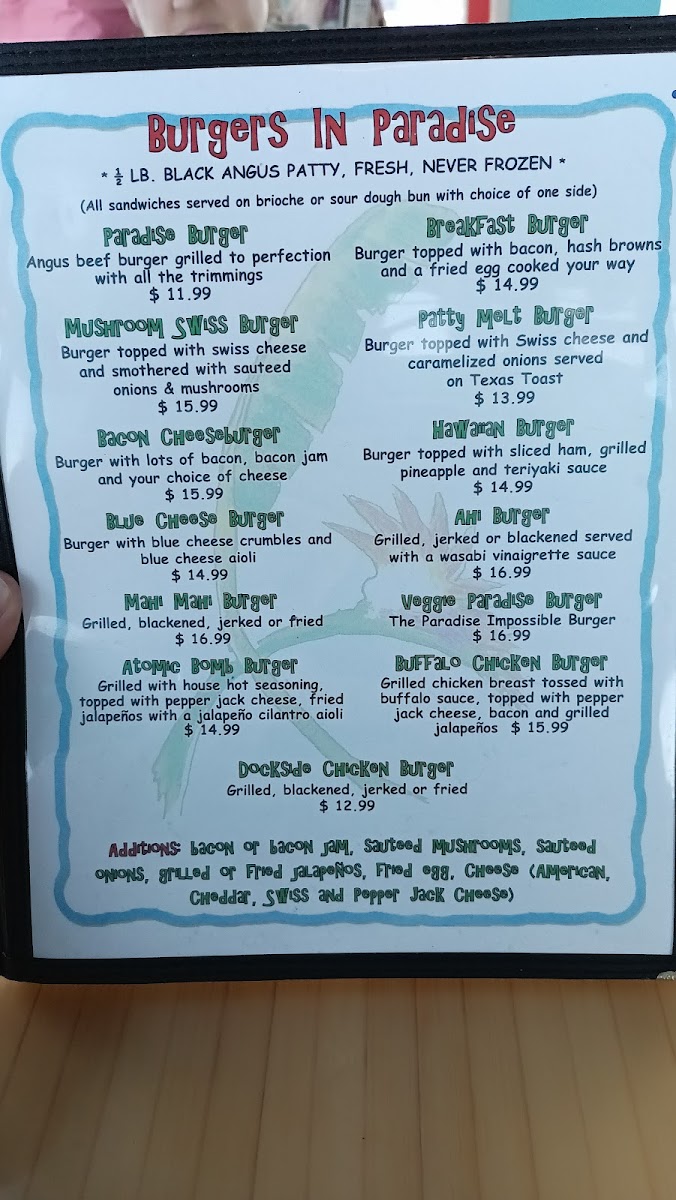 Burgers in Paradise
* ½ LB. BLACK ANGUS PATTY, FRESH, NEVER FROZEN *
(All sandwiches served on brioche or sour dough bun with choice of one side)
Paradise Burger
Angus beef burger grilled to perfection
with all the trimmings
$ 11.99
Mushroom Swiss Burger
Burger topped with swiss cheese
and smothered with sauteed
onions & mushrooms
$ 15.99
Bacon Cheeseburger
Burger with lots of bacon, bacon jam
and your choice of cheese
$ 15.99
Blue Cheese Burger
Burger with blue cheese crumbles and
blue cheese aioli
$ 14.99
Mahi Mahi Burger
Grilled, blackened, jerked or fried
$ 16.99
Atomic Bomb Burger
Grilled with house hot seasoning,
topped with pepper jack cheese, fried
jalapeños with a jalapeño cilantro aioli
$ 14.99
Breakfast Burger
Burger topped with bacon, hash browns
and a fried egg cooked your way
$ 14.99
Patty Melt Burger
Burger topped with Swiss cheese and
caramelized onions served
on Texas Toast
$ 13.99
Hawaiian Burger
Burger topped with sliced ham, grilled
pineapple and teriyaki sauce
$ 14.99
Ahi Burger
Grilled, jerked or blackened served
with a wasabi vinaigrette sauce
$ 16.99
Veggie Paradise Burger
The Paradise Impossible Burger
$ 16.99
Buffalo Chicken Burger
Grilled chicken breast tossed with
buffalo sauce, topped with pepper
jack cheese, bacon and grilled
jalapeños $ 15.99
Dockside Chicken Burger
Grilled, blackened, jerked or fried
$ 12.99
Additions: bacon or bacon jam, sauteed mushrooms, sauteed
onions, grilled or fried jalapeños, fried egg, cheese (American,
Cheddar, Swiss and Pepper Jack Cheese)